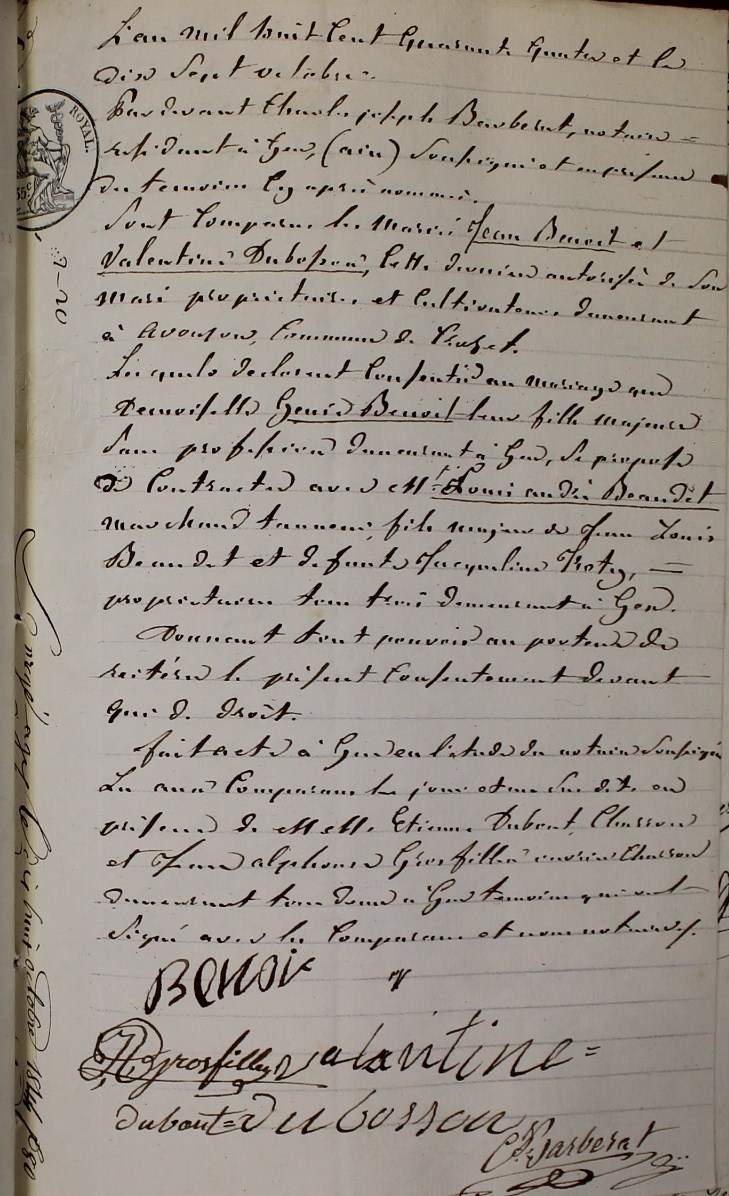 L'an mil huit cent quarante quatre et le
dix sept octobre.
Par devant Charles joseph Barberat, notaire =
residant à Gex, (ain) soussigné et en presence
des temoins cy après nommés.
Sont comparus les mariés Jean Benoit et
Valentine Dubosson, cette derniere autorisée de son
mari proprietaires et cultivateurs demeurant
à Avouson, Commune de Crozet.
Lesquels declarent consentir au mariage que
Demoiselle Benoit leur fille majeure
sans profession demeurant à Gex, se propose
de contracter avec Mr Louis andré Beaudet
marchand tanneur, fils majeur de Jean Louis
Beaudet et defunte Jacqueline =
proprietaires tous trois demeurant à Gex.
Donnant tout pouvoir au porteur de
reitérer le présent consentement devant
qui de droit.
fait acte à Gex en l'etude du notaire soussigné
Lu aux comparans les jour et an susdits en
présence de MM. Etienne Dubout, Charron
et Jean alphonse Grosfilley ouvrier Charron
demeurant tous deux à Gex temoins qui ont
signé avec les comparans et nous notaires.
BENOit
grosfilley valantine =
dubout = dubosson
Ch. Barberat
ROYAL.
35 c
7-20
Enregistré à Gex le dix huit octobre 1844